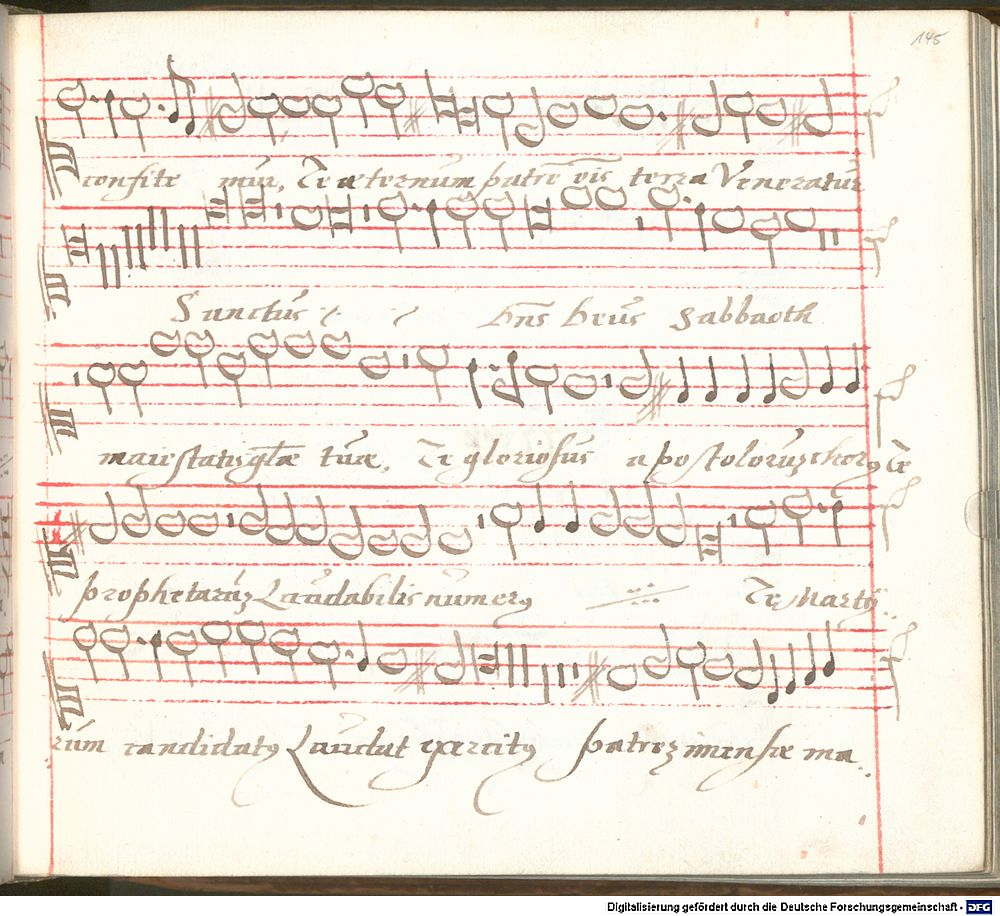 145
confite mur, Te æternum patrē oīs terra Veneratur
Sanctus ·/· ·/· Dns Deus Sabbaoth
maiestatis glæ tuæ, Te gloriosus apostolorum chorus Te
prophetarum Laudabilis numerus Te Marty
rum candidatus Laudat exercitus patrem imensæ ma
Digitalisierung gefördert durch die Deutsche Forschungsgemeinschaft - DFG